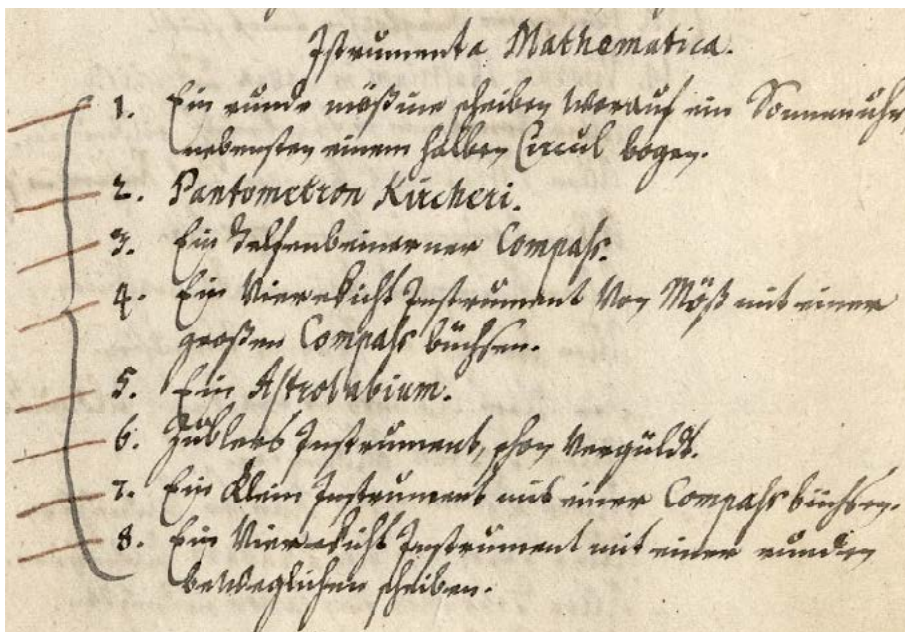 Istrumenta Mathematica.
1. Ein runde mößine scheiben worauf ein Sonnenuhr,
nebensten einem halben Circul bogen.
2. Pantometron Kircheri.
3. Ein helfenbeinerner Compass.
4. Ein Viereckicht Instrument Von Möß mit einer
großen Compass büchsen.
5. Ein Astrolabium.
6. Züblers Instrument, schon Vergüldt.
7. Ein Klein Instrument mit einer Compass büchsen.
8. Ein Viereckicht Instrument mit einer runden
beweglichen scheiben.